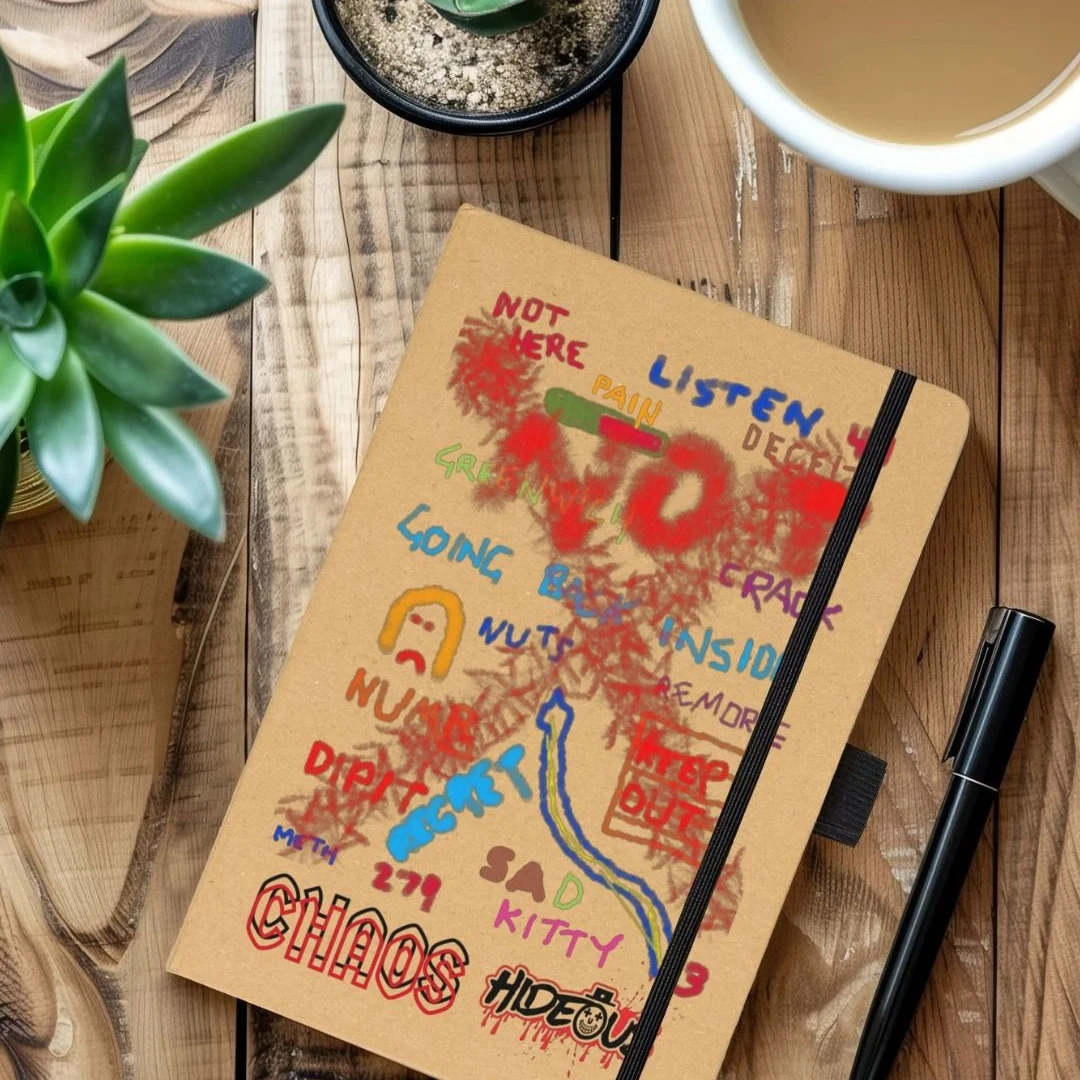 NOT
HERE
PAIN
LISTEN
NOT
GOING BACK INSIDE
CRACK
NUTS
REMORSE
NUMB
KEEP
OUT
DIPIT
SECRET
METH
279
SAD
KITTY
3
CHAOS
HIDEOUS